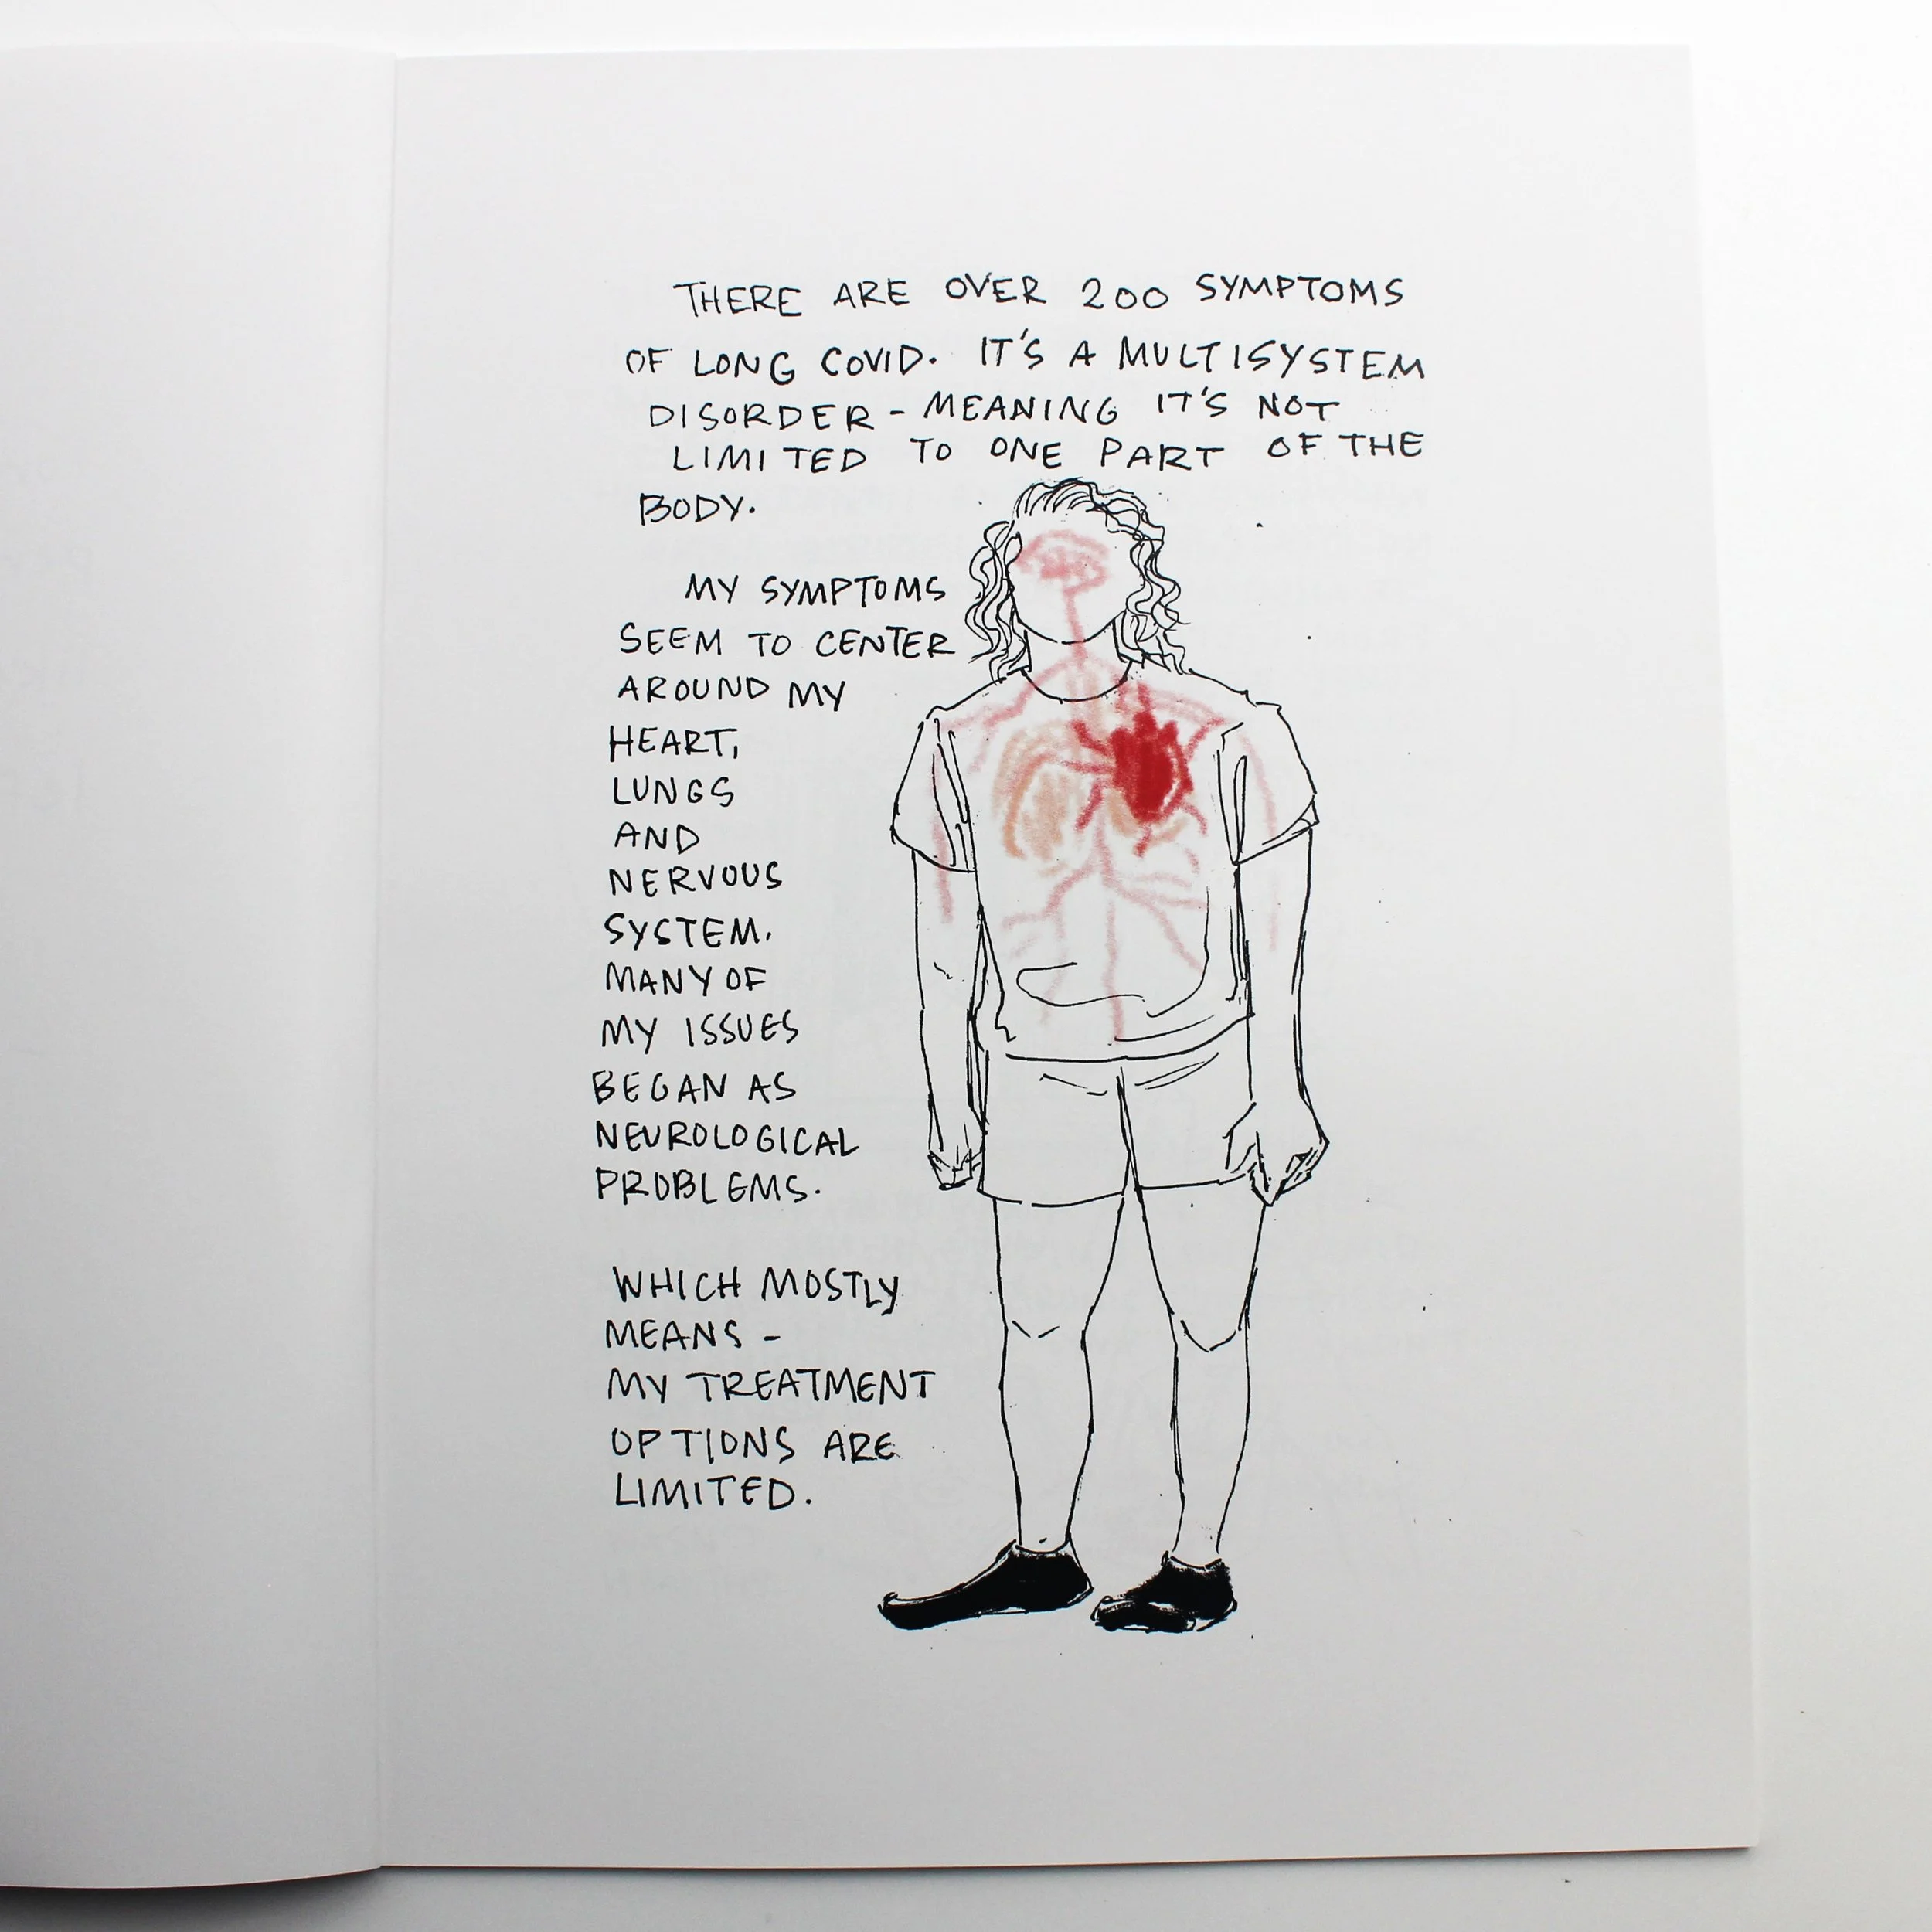 THERE ARE OVER 200 SYMPTOMS
OF LONG COVID. IT'S A MULTISYSTEM
DISORDER - MEANING IT'S NOT
LIMITED TO ONE PART OF THE
BODY.
MY SYMPTOMS
SEEM TO CENTER
AROUND MY
HEART,
LUNGS
AND
NERVOUS
SYSTEM.
MANY OF
MY ISSUES
BEGAN AS
NEUROLOGICAL
PROBLEMS.
WHICH MOSTLY
MEANS -
MY TREATMENT
OPTIONS ARE
LIMITED.